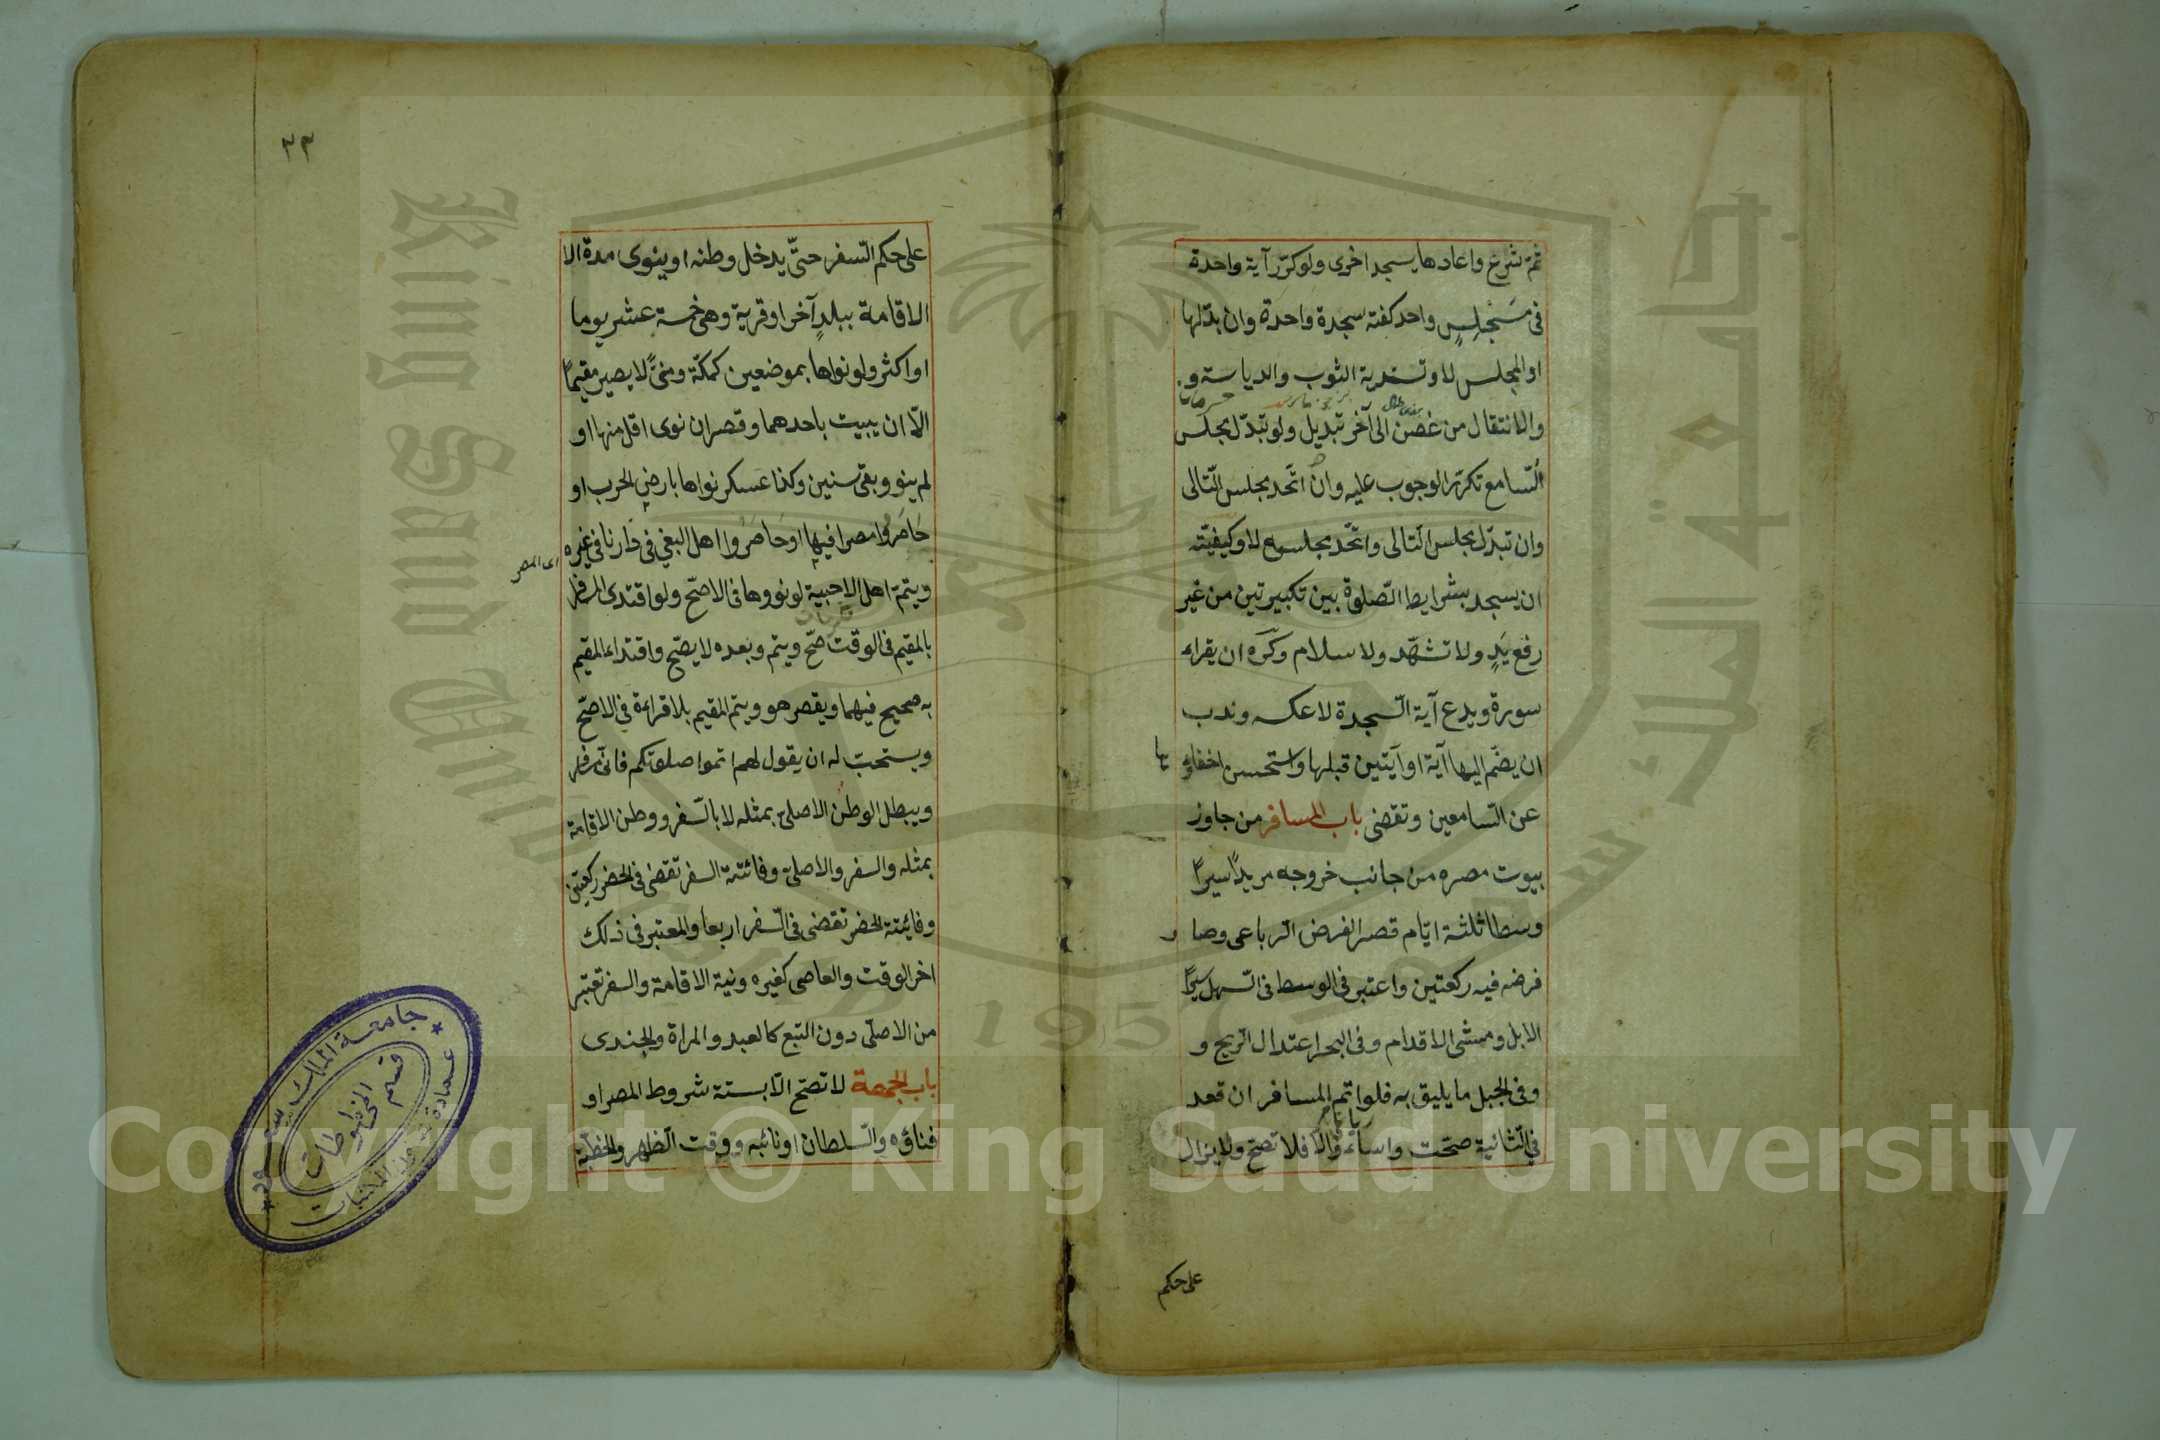 ثمّ شرع واعادها يسجد اخرى ولو كرّر آية واحدة
فى مَسْجلِسٍ واحد كفته سجدة واحدة وان بدّلها
او المجلس لا وتسدية الثوب والدياسة و
والانتقال من غصن الى آخر تبديل ولو تبدّل مجلس
السّامع تكرّر الوجوب عليه وان اتّحد مجلس التّالى
وان تبدّل مجلس التّالى واتّحد مجلسه لا وكيفيّته
ان يسجد بشرايط الصّلوة بين تكبيرتين من غير
رفع يَدٍ ولا تشهّد ولا سلام وكره ان يقراء
سورة ويدع آية السّجدة لا عكسه وندب
ان يضّم اليها آية او آيتين قبلها واستحسن اخفاؤ
ها
عن السّامعين وتقضى باب المسافر من جاوز
بيوت مصره من جانب خروجه مريدًا سيرًا
وسطا ثلثة ايّام قصر الفرض الرّباعى وصا
ر
فرضه فيه ركعتين واعتبر فى الوسط فى السّهل سيرًا
الابل ومشى الاقدام وفى البحر اعتدال الرّيح و
وفى الجبل ما يليق به فلو اتم المسافر ان قعد
فى الثّانية صحّت واساء والّا فلا تصحّ ولا يزال
على حكم
٣٣
على حكم السّفر حتّى يدخل وطنه او ينوى مدة الا
الاقامة ببلدٍ آخر او قرية وهى خمسة عشر يوما
او اكثر ولو نواها بموضعين كمكّة ومنىً لا يصير مقيمًا
الّا ان يبيت باحدهما وقصر ان نوى اقل منها او
لم ينو وبقى سنين وكذا عسكر نواها بارض الحرب او
حَاصَرُوا مصرا فيها او حَاصَرُوا اهل البغي فى دارنا فى غيره
اى المصر
ويتمّ اهل الاخبية لو نووها فى الاصّح ولو اقتدى المسافر
بالمقيم فى الوقت صحّ ويتم وبعده لا يصّح واقتداء المقيم
به صحيح فيهما ويقصر هو ويتم المقيم بلا قراءة فى الاصحّ
ويستحبّ له ان يقول لهم اتموا صلوتكم فانّى مسافر
ويبطل الوطن الاصلىّ بمثله لا بالسّفر ووطن الاقامة
بمثله والسفر والاصلىّ وفائتة السفر تقضى فى الحضر ركعتين
وفايئتة الحضر تقضى فى السّفر اربعا والمعتبر فى ذلك
اخر الوقت والعاصى كغيره ونية الاقامة والسفر تعتبر
من الاصلّى دون التبع كالعبد والمراة والجندى
باب الجمعة لا تصحّ الّا بستة شروط المصر او
فناؤه والسّلطان او نائبه ووقت الظهر والخطبة
جامعة الملك سعود
عمادة شؤون المكتبات
قسم المخطوطات
King Saud University
جامعة الملك سعود
195
Copyright © King Saud University